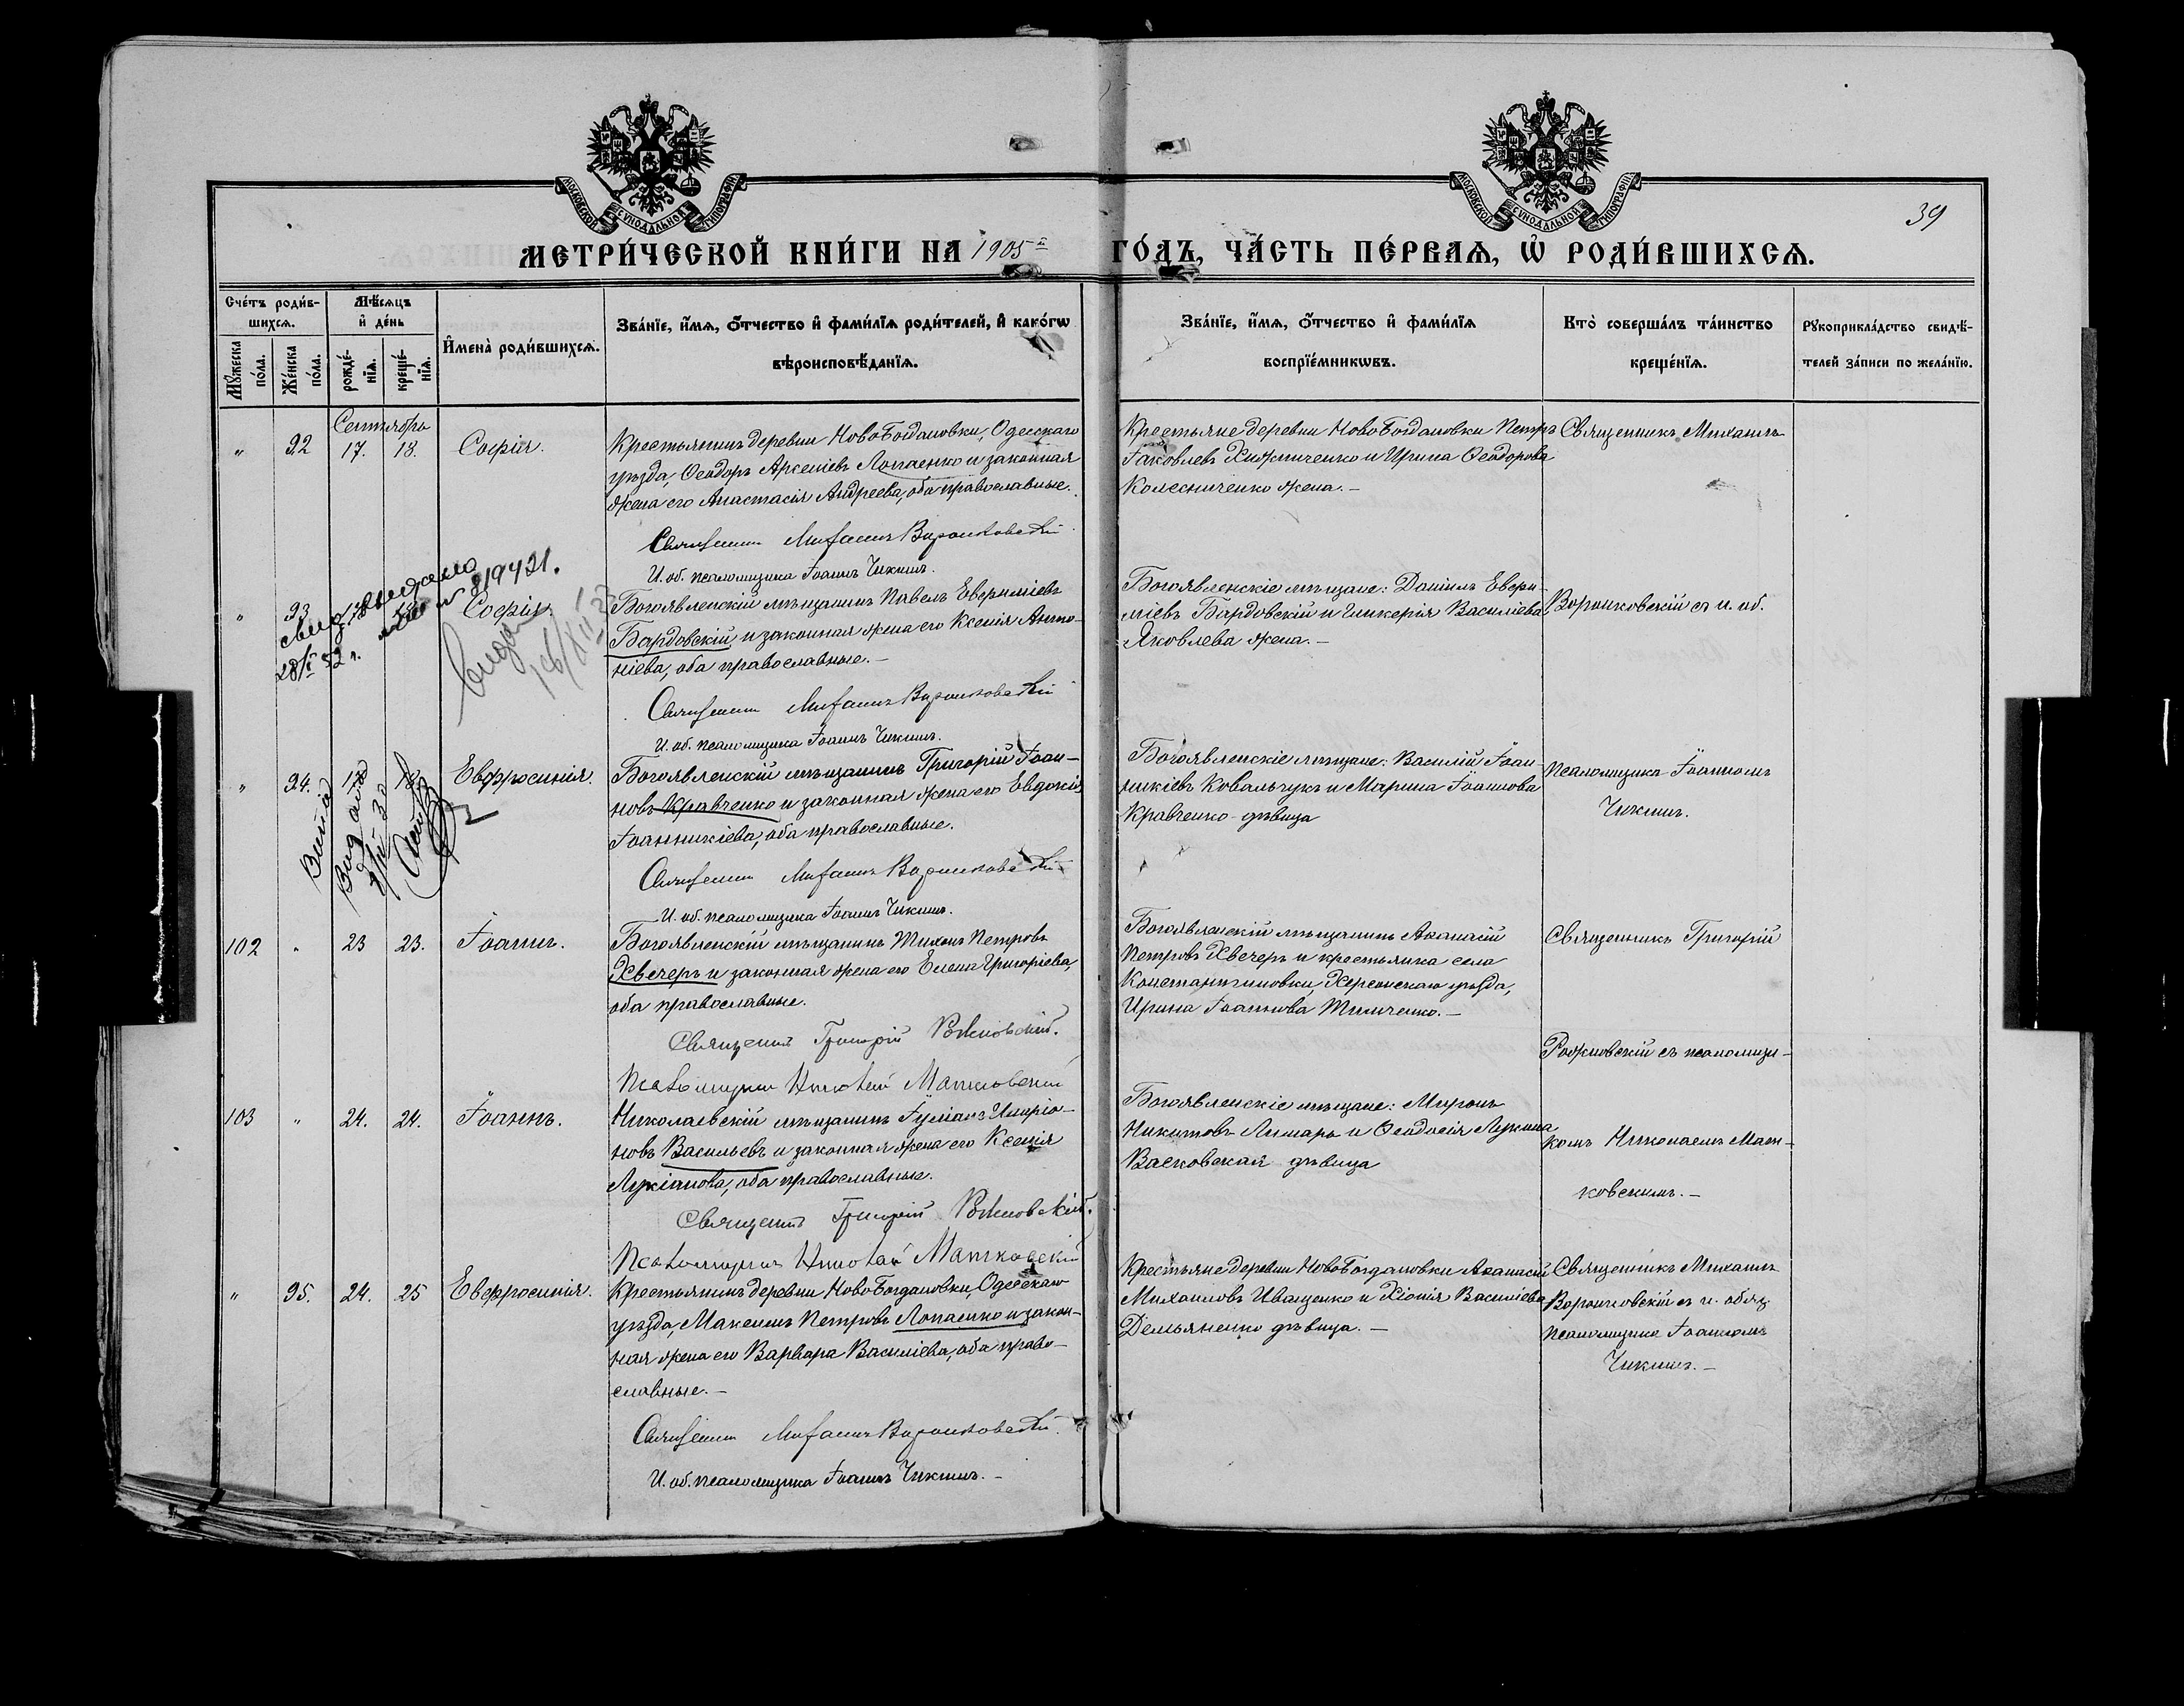 МОСКОВСКОЙ СѴНОДАЛЬНОЙ ТИПОГРАФІИ
МОСКОВСКОЙ СѴНОДАЛЬНОЙ ТИПОГРАФІИ
39
МЕТРИ́ЧЕСКОЙ КНИ́ГИ НА 1905й ГО́ДЪ, ЧА́СТЬ ПЕ́РВАѦ, Ѡ҆ РОДИ́ВШИХСѦ.
Сче́тъ роди́в-
шихсѧ.
Мꙋ́жеска по́ла.
Же́нска по́ла.
Мѣ́сѧцъ
и҆ де́нь
рожде́-
нїѧ.
креще́-
нїѧ.
И҆мена̀ роди́вшихсѧ.
Зва́нїе, и҆́мѧ, ѻ҆́тчество и҆ фами́лїѧ роди́телей, и҆ како́гѡ
вѣроисповѣ́данїѧ.
Зва́нїе, и҆́мѧ, ѻ҆́тчество и҆ фами́лїѧ
воспрїе́мникѡвъ.
Кто̀ соверша́лъ та́инство
креще́нїѧ.
Рꙋкоприкла́дство свидѣ́-
телей за́писи по жела́нїю.
Сентябрь
" 92 17. 18. Софія.
Крестьянинъ деревни НовоБогдановки, Одесскаго
уѣзда, Ѳеодоръ Арсеніевъ Лопаенко и законная
жена его Анастасія Андреева, оба православные.
Священникъ Михаилъ Воронковскій
И. об. псаломщика Іоаннъ Чикинъ.
Крестьяне деревни НовоБогдановки Петръ
Іаковлевъ Хижниченко и Ирина Ѳеодорова
Колесниченко жена. —
Священникъ Михаилъ
" 93 18. Софія.
выдано
819421.
28/ 52 г.
Богоявленскій мѣщанинъ Павелъ Евѳиміевъ
Бардовскій и законная жена его Ксенія Анто-
ніева, оба православные. —
Священникъ Михаилъ Воронковскій
И. об. псаломщика Іоаннъ Чикинъ.
Богоявленскіе мѣщане: Даніилъ Евѳи-
міевъ Бардовскій и Гликерія Василіева
Яковлева жена. —
Воронковскій съ и. об.
" 94. Евфросинія.
Богоявленскій мѣщанинъ Григорій Іоан-
новъ Кравченко и законная жена его Евдокія
Іоанникіева, оба православные.
Священникъ Михаилъ Воронковскій
И. об. псаломщика Іоаннъ Чикинъ.
Богоявленскіе мѣщане: Василій Іоан-
никіевъ Ковальчукъ и Марина Іоаннова
Кравченко дѣвица
псаломщика Іоанномъ
Чикинъ.
102 " 23 23. Іоаннъ.
Богоявленскій мѣщанинъ Тихонъ Петровъ
Хвечеръ и законная жена его Елена Григоріева,
оба православные.
Священникъ Григорій Рожновскій.
Псаломщикъ Николай Матковскій
Богоявленскій мѣщанинъ Аѳанасій
Петровъ Хвечеръ и крестьянка села
Константиновки, Херсонскаго уѣзда,
Ирина Іоаннова Тимченко. —
Священникъ Григорій
Рожновскій съ псаломщи-
103 " 24. 24. Іоаннъ.
Николаевскій мѣщанинъ Іуліанъ Иларіо-
новъ Васильевъ и законная жена его Ксенія
Лукіанова, оба православные.
Священникъ Григорій Рожновскій.
Псаломщикъ Николай Матковскій
Богоявленскіе мѣщане: Миронъ
Никитовъ Лимарь и Ѳеодосія Лукина
Васковская дѣвица
комъ Николаемъ Мат-
ковскимъ. —
" 95. 24. 25 Евфросинія.
Крестьянинъ деревни НовоБогдановки, Одесскаго
уѣзда, Максимъ Петровъ Лопаенко и закон-
ная жена его Варвара Василіева, оба право-
славные. —
Священникъ Михаилъ Воронковскій.
И. об. псаломщика Іоаннъ Чикинъ. —
Крестьяне деревни НовоБогдановки Аѳанасій
Михаиловъ Иващенко и Хіонія Василіева
Демьяненко дѣвица. —
Священникъ Михаилъ
Воронковскій съ и. обяз.
псаломщика Іоанномъ
Чикинъ. —